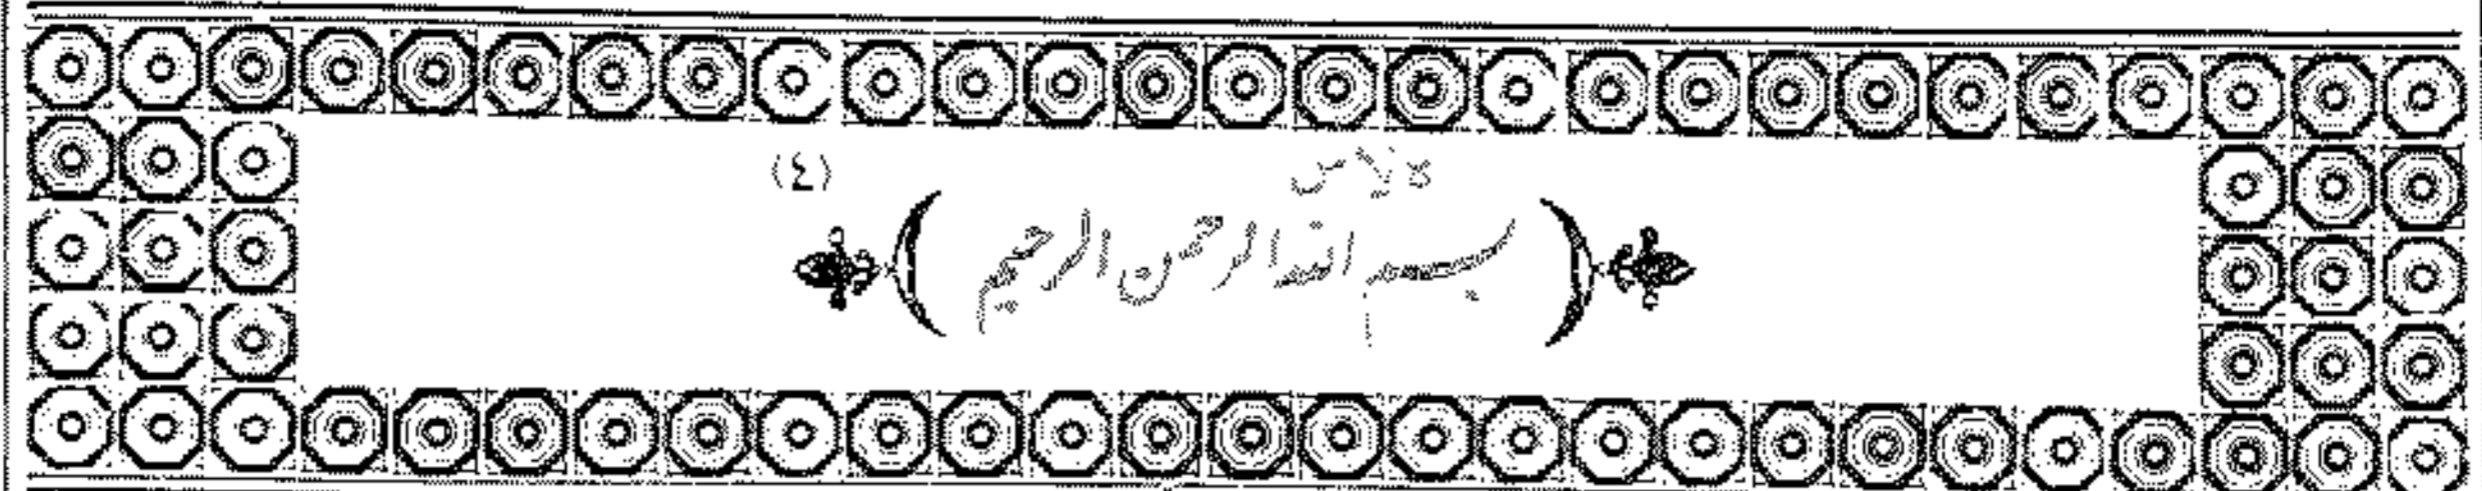 (٤)
﴿ بسم الله الرحمن الرحيم ﴾